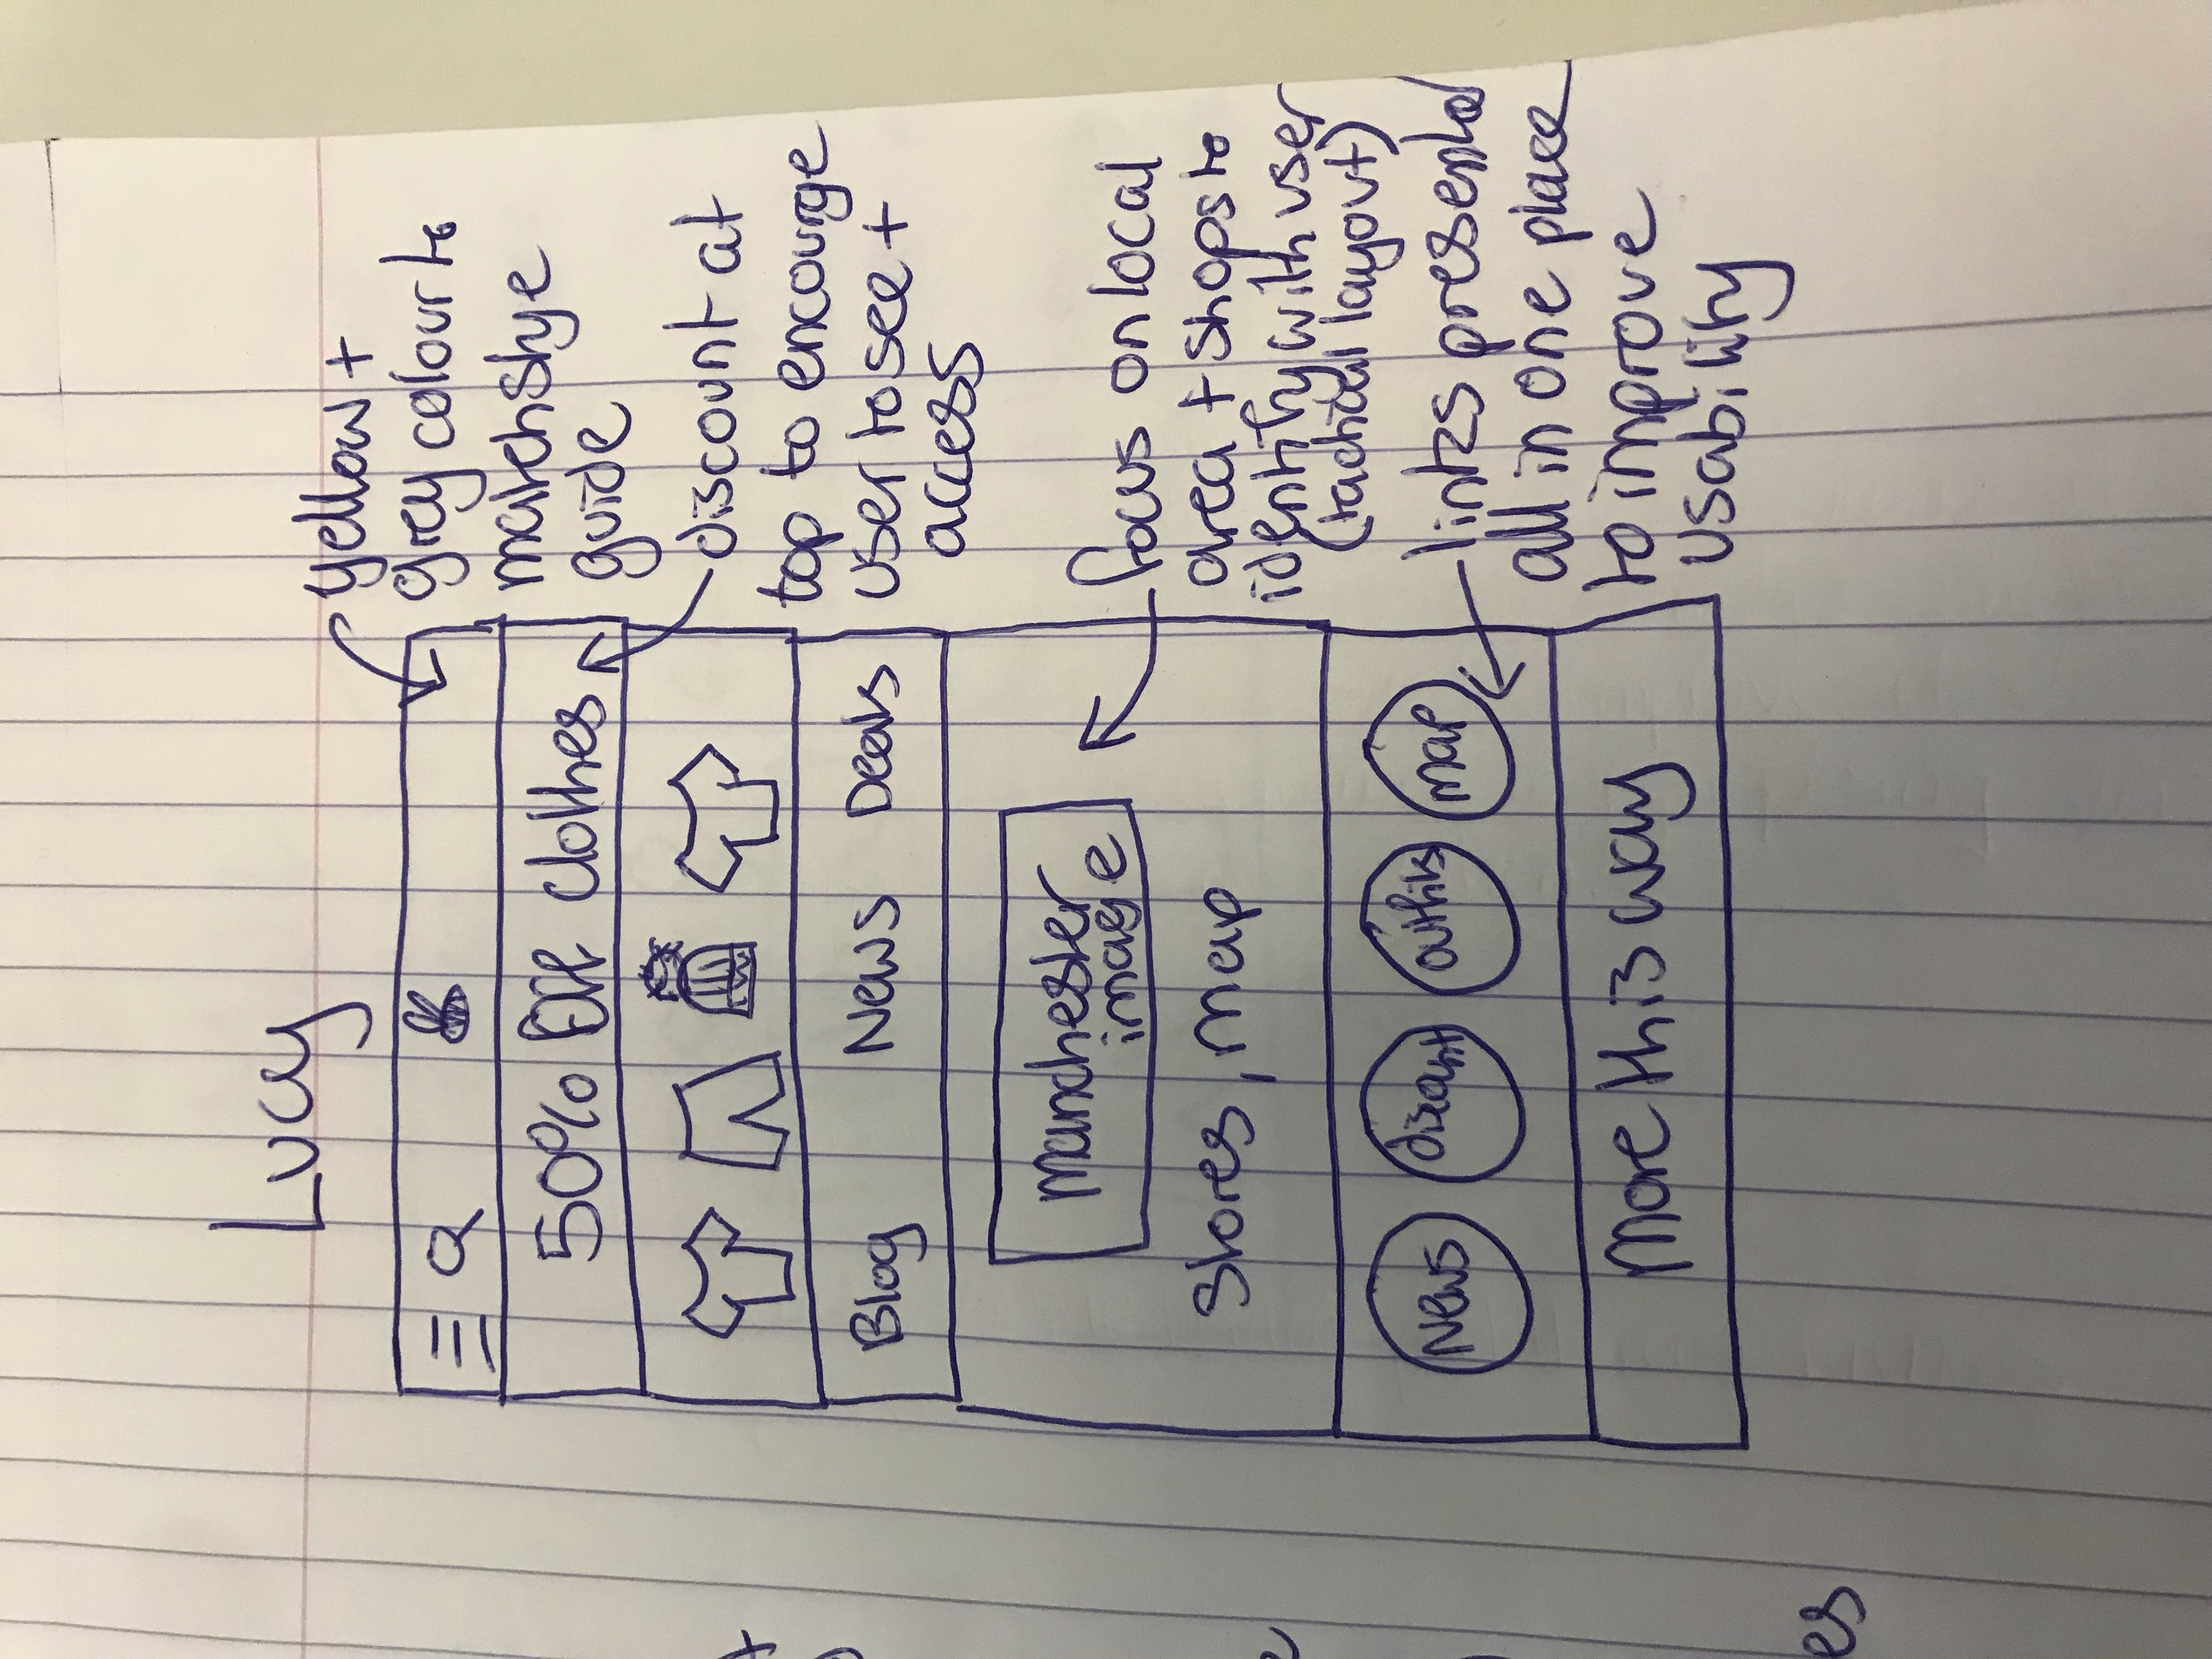 Lucy
50% Off Clothes
Blog News Deals
Manchester
image
Stores, Map
News discount outfits map
More this way
yellow +
grey colour to
match stye
guide
discount at
top to encourge
user to see +
access
focus on local
area + shops to
identify with user
(tactical layout)
links presented
all in one place
to improve
usability
es